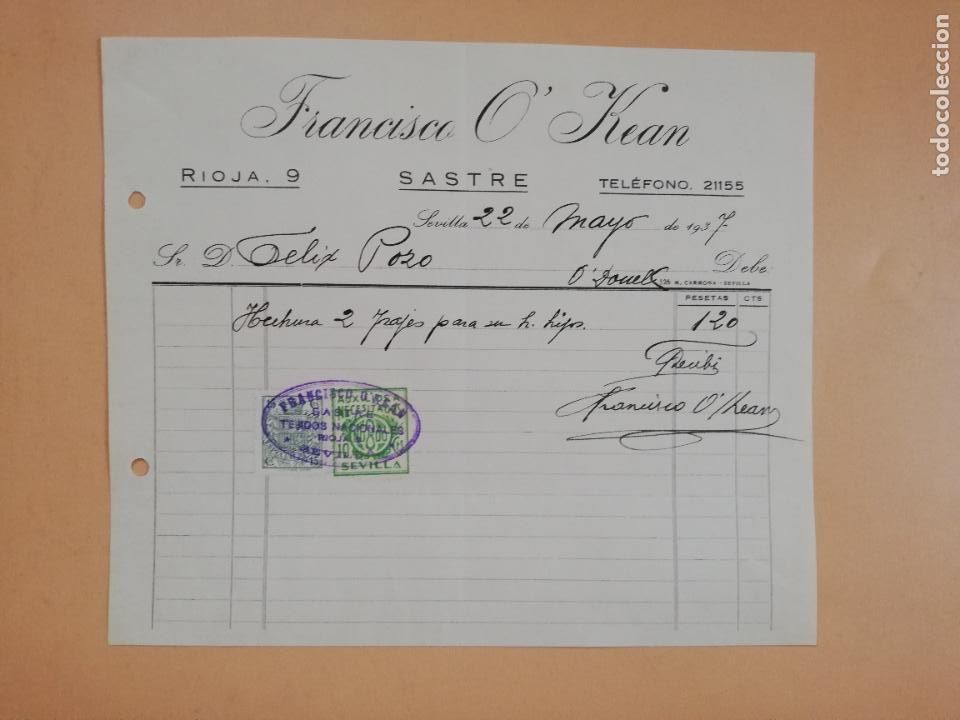 Francisco O'Kean
RIOJA. 9 SASTRE TELÉFONO. 21155
Sevilla 22 de Mayo de 1937
Sr. D. Felix Pozo Debe
O'Donell 125 M. CARMONA - SEVILLA
PESETAS CTS
Hechura 2 trajes para su h. hijos. 120
Recibí
Francisco O'Kean
FRANCISCO O'KEAN
SASTRE
TEJIDOS NACIONALES
RIOJA 9
SEVILLA
10
SEVILLA
todocoleccion